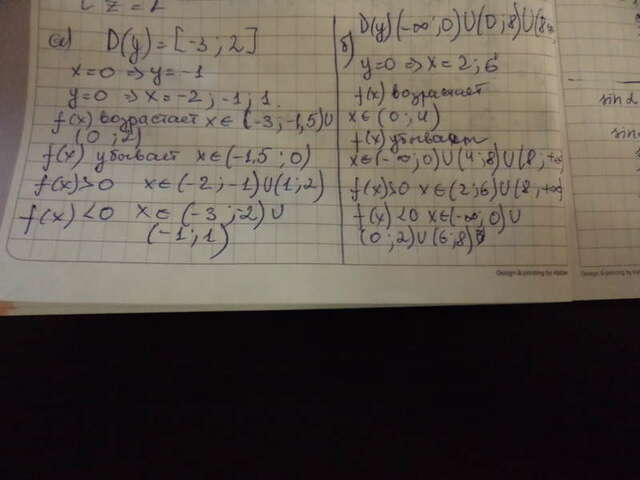 а) D(y) = [-3 ; 2]
x=0 ⇒ y=-1
y=0 ⇒ x=-2 ; -1 ; 1
f(x) возрастает x∈ (-3 ; -1,5) U
(0 ; 2)
f(x) убывает x∈(-1,5 ; 0)
f(x)>0 x∈(-2 ; -1)U(1 ; 2)
f(x)<0 x∈(-3 ; -2) U
(-1 ; 1)
б) D(y)(-∞ ; 0)U(0 ; 8)U(8
y=0 ⇒ x=2 ; 6
f(x) возрастает
x∈(0 ; 4)
f(x) убывает
x∈(-∞ ; 0)U(4 ; 8)U(8 ; +∞)
f(x)>0 x∈(2 ; 6)U(8 , +∞)
f(x)<0 x∈(-∞ ; 0)U
(0 ; 2)U(6 ; 8)
sin α
sin
Design & printing by
Design & printing by